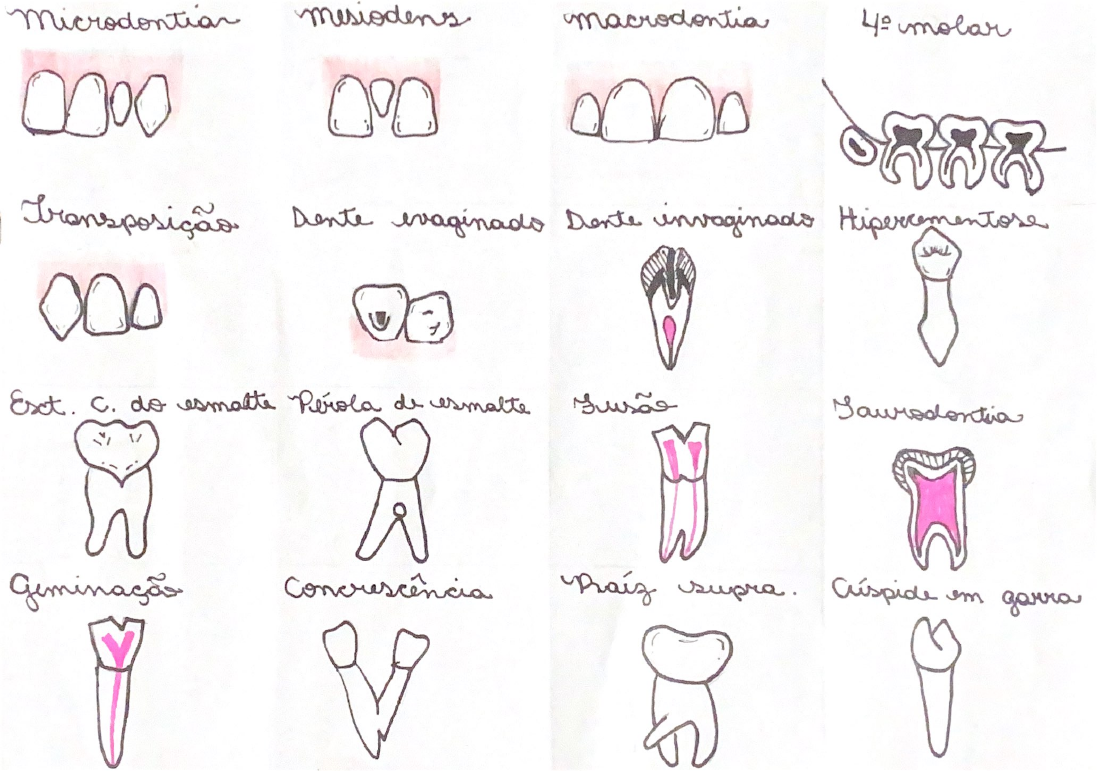 Microdontia
Mesiodens
Macrodontia
4º molar
Transposição
Dente evaginado
Dente invaginado
Hipercementose
Ext. C. do esmalte
Pérola de esmalte
Fusão
Taurodontia
Geminação
Concrescência
Raíz supra.
Cúspide em garra